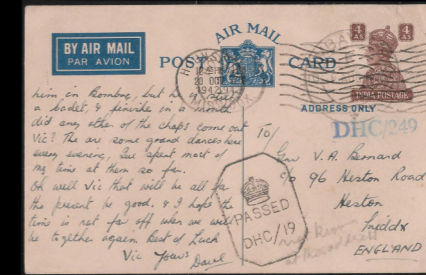 AIR MAIL
BY AIR MAIL
PAR AVION
POST CARD
INDIA POSTAGE
ADDRESS ONLY
DHC/249
him in Bombay, but he is still
a cadet, & finishes in a month
did any other of the chaps come out
Vic? The are some grand dances here
every evening, I've spent most of
my time at them so far.
Oh well Vic that will be all for
the present be good, & I hope the
time is not far off when we will
be together again. Best of Luck
Vic Yours
To/
V. A. Bernard
c/o 96 Heston Road
Heston
Middx
ENGLAND
PASSED
DHC/19